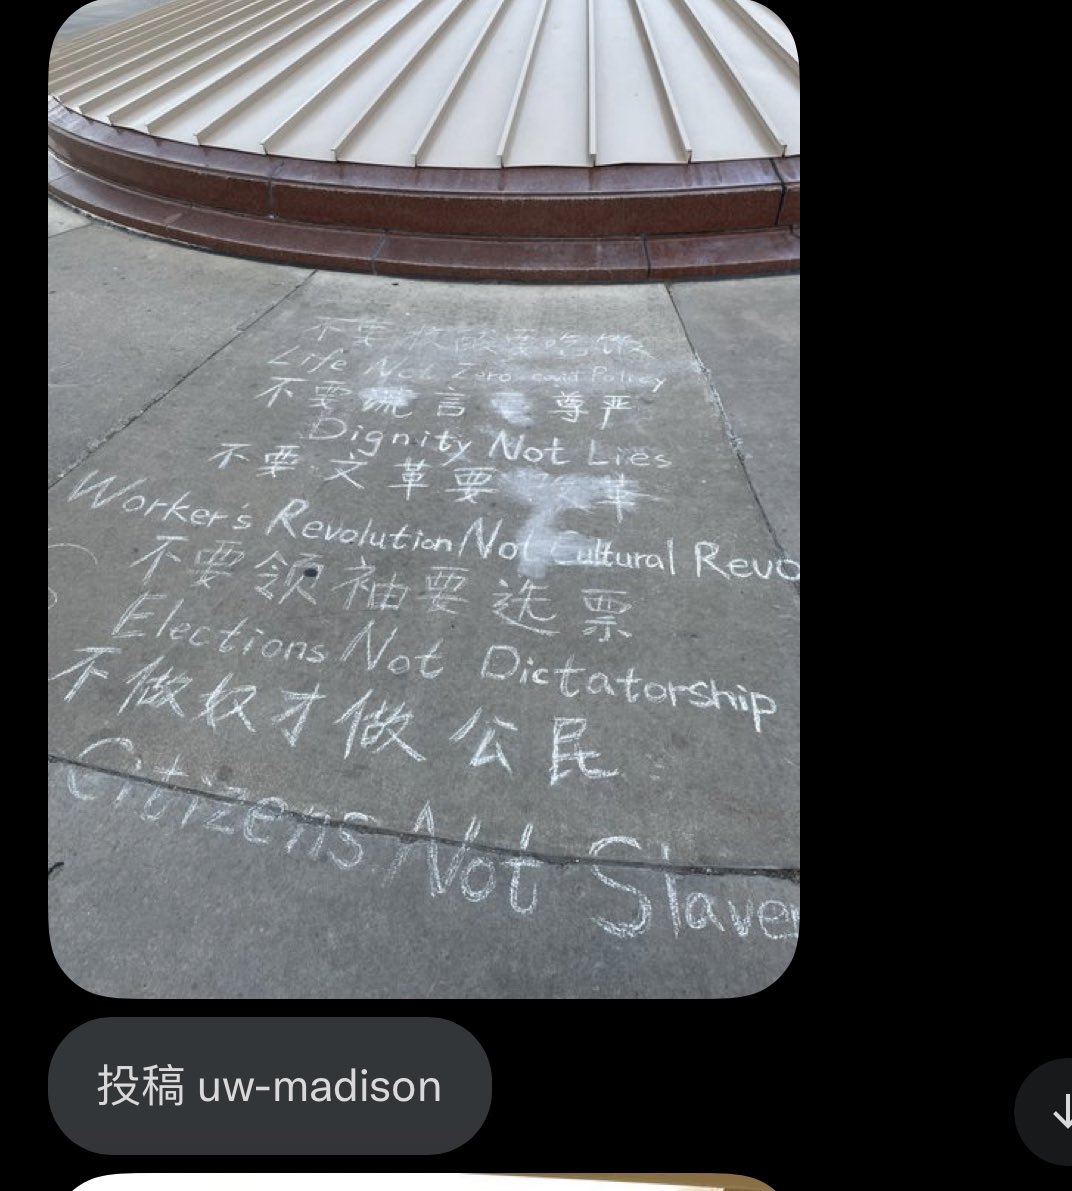 不要核酸要吃饭
Life Not Zero covid Policy
不要谎言 尊严
Dignity Not Lies
不要文革要改革
Worker's Revolution Not Cultural Revo
不要领袖要选票
Elections Not Dictatorship
不做奴才做公民
Citizens Not Slave
投稿 uw-madison